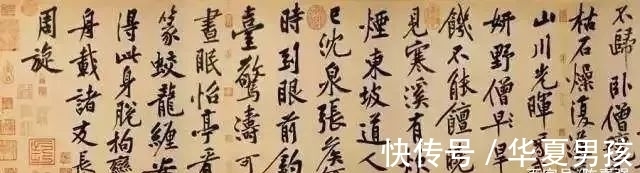 不歸卧僧
枯石燥復
山川光暉
妍野僧早
饑不能饘
見寒溪有
煙東坡道人
已沈泉張侯
時到眼前釣
臺驚濤可
晝眠怡亭看
篆蛟龍纏
得此身脱拘攣
舟載諸友長
周旋
快传号 / 华夏男孩